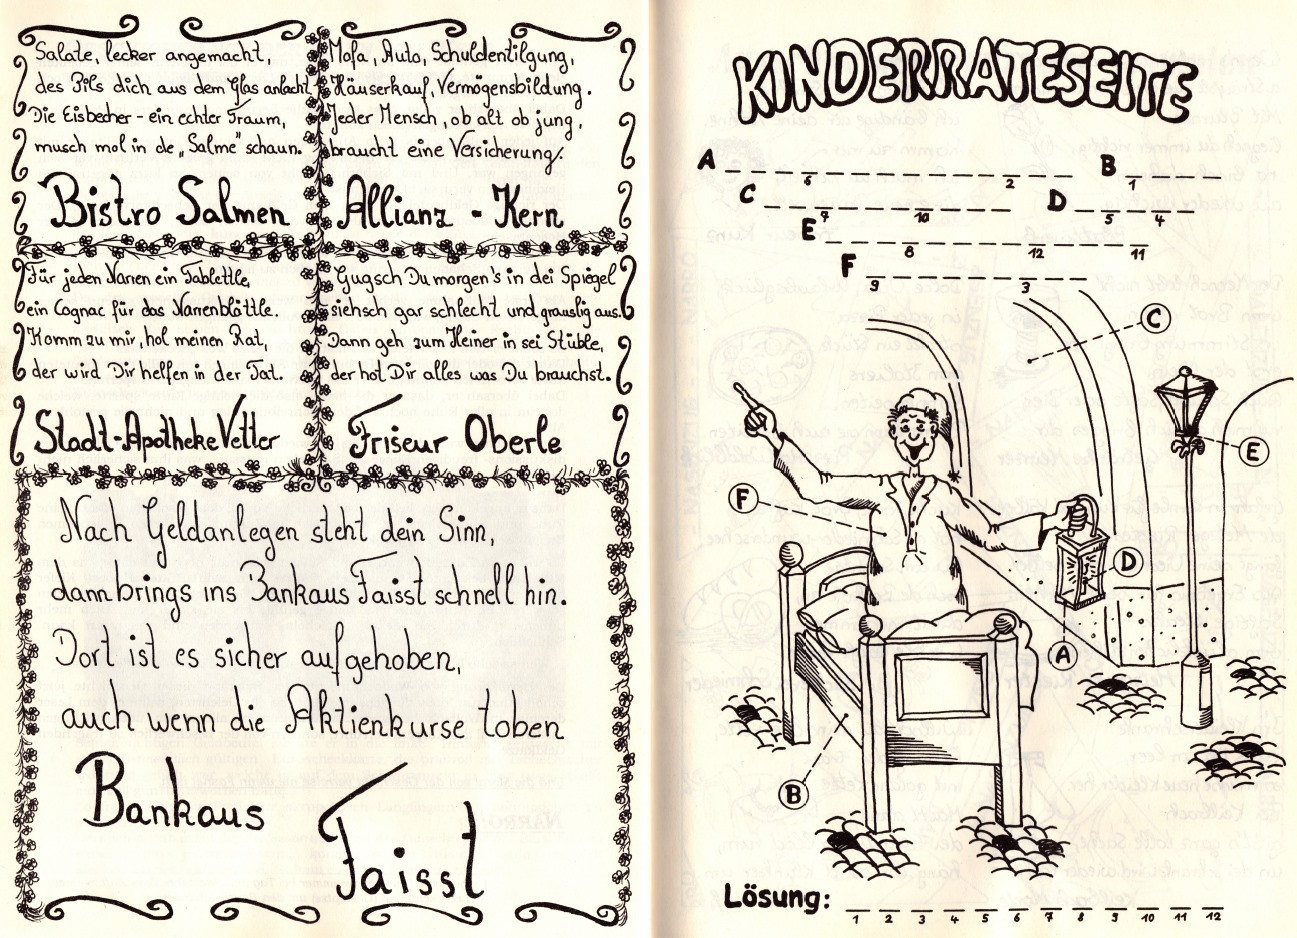 Salate, lecker angemacht,
des Pils dich aus dem Glas anlacht
Die Eisbecher - ein echter Traum,
musch mol in de „Salme" schaun.
Bistro Salmen
Mofa, Auto, Schuldentilgung,
Häuserkauf, Vermögensbildung.
Jeder Mensch, ob alt ob jung,
braucht eine Versicherung.
Allianz - Kern
Für jeden Narren ein Tablettle,
ein Cognac für das Narrenblättle.
Komm zu mir, hol meinen Rat,
der wird Dir helfen in der Tat.
Stadt-Apotheke Vetter
Gugsch Du morgen's in dei Spiegel
siehsch gar schlecht und grauslig aus.
Dann geh zum Heiner in sei Stüble,
der hot Dir alles was Du brauchst.
Friseur Oberle
Nach Geldanlegen steht dein Sinn,
dann brings ins Bankaus Faisst schnell hin.
Dort ist es sicher aufgehoben,
auch wenn die Aktienkurse toben
Bankaus
Faisst
KINDERRATESEITE
A _ _ _ _ _ _ _ _ _ _ _ _ B _ _ _ _
6 2 1
C _ _ _ _ _ _ _ _ D _ _ _ _ _
7 10 5 4
E _ _ _ _ _ _ _ _ _ _ _
8 12 11
F _ _ _ _ _ _ _
9 3
C
E
F
D
A
B
Lösung: _ _ _ _ _ _ _ _ _ _ _ _
1 2 3 4 5 6 7 8 9 10 11 12